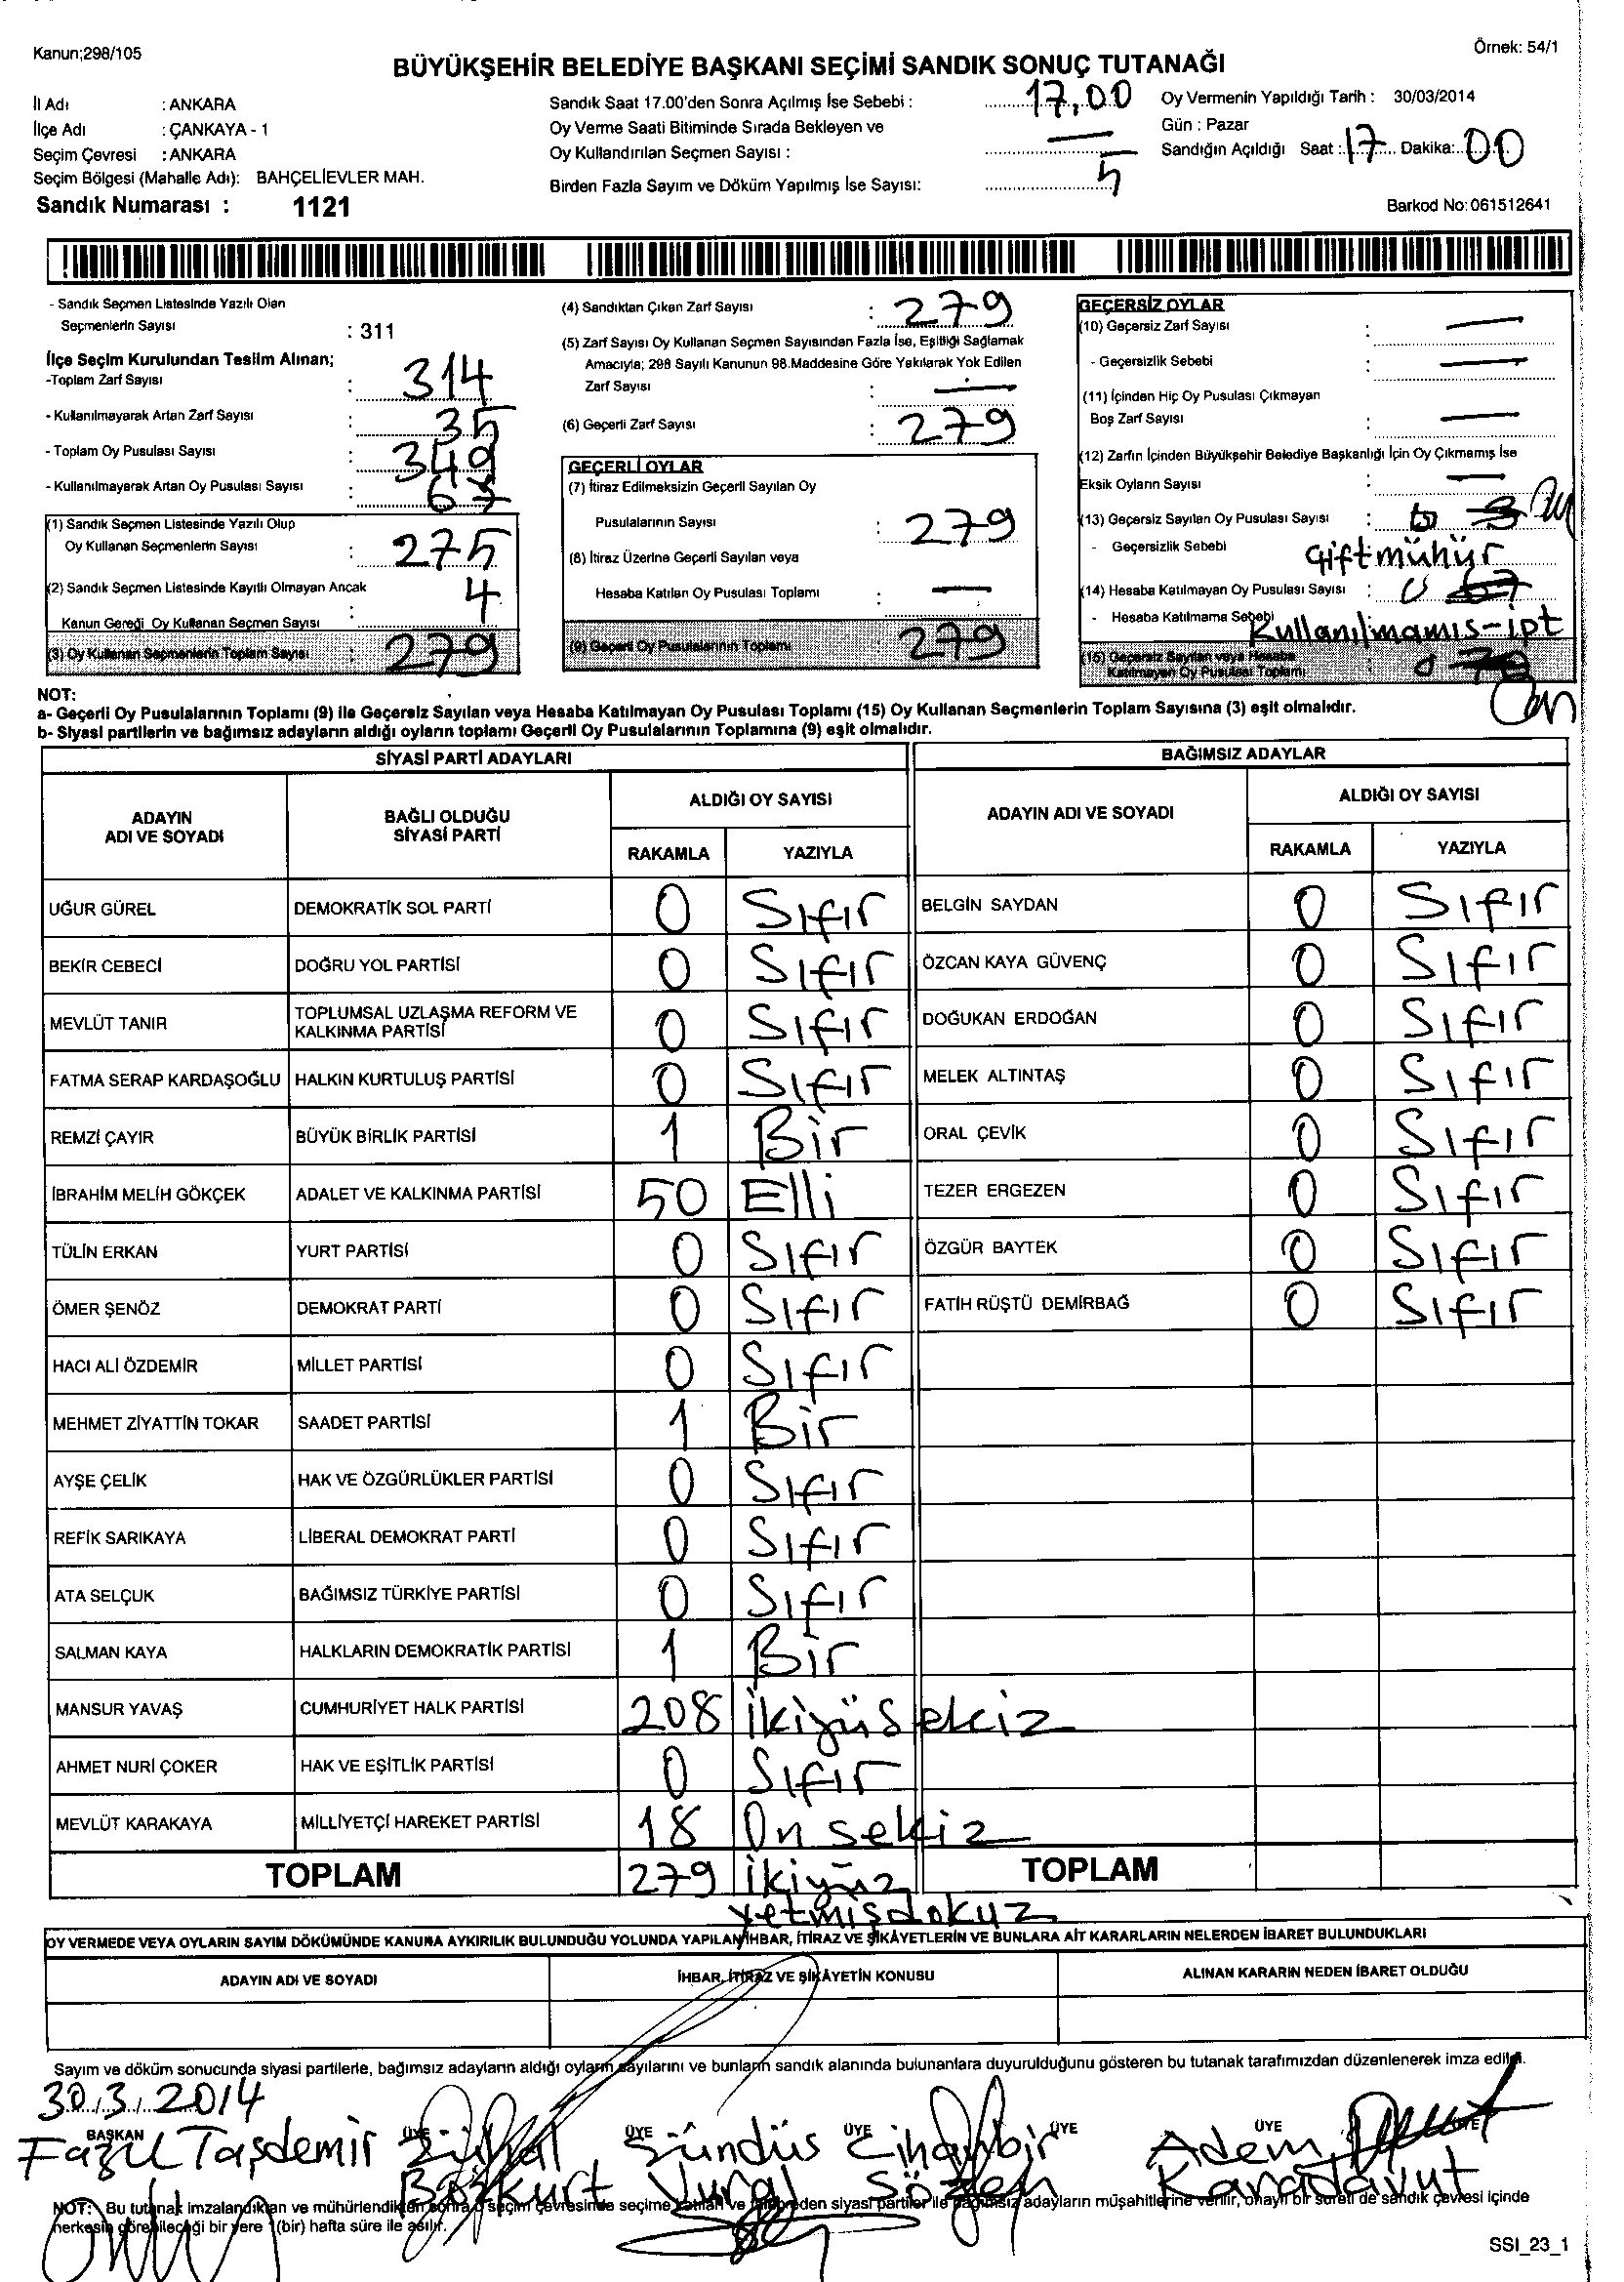 Kanun;298/105
Örnek: 54/1
BÜYÜKŞEHİR BELEDİYE BAŞKANI SEÇİMİ SANDIK SONUÇ TUTANAĞI
İl Adı : ANKARA
İlçe Adı : ÇANKAYA - 1
Seçim Çevresi : ANKARA
Seçim Bölgesi (Mahalle Adı): BAHÇELİEVLER MAH.
Sandık Numarası : 1121
Sandık Saat 17.00'den Sonra Açılmış İse Sebebi : 17,00
Oy Verme Saati Bitiminde Sırada Bekleyen ve
Oy Kullandırılan Seçmen Sayısı : —
Birden Fazla Sayım ve Döküm Yapılmış İse Sayısı: 5
Oy Vermenin Yapıldığı Tarih : 30/03/2014
Gün : Pazar
Sandığın Açıldığı Saat : 17 Dakika: 00
Barkod No: 061512641
- Sandık Seçmen Listesinde Yazılı Olan
Seçmenlerin Sayısı : 311
İlçe Seçim Kurulundan Teslim Alınan;
-Toplam Zarf Sayısı : 314
- Kullanılmayarak Artan Zarf Sayısı : 35
- Toplam Oy Pusulası Sayısı : 349
- Kullanılmayarak Artan Oy Pusulası Sayısı : 67
(1) Sandık Seçmen Listesinde Yazılı Olup
Oy Kullanan Seçmenlerin Sayısı : 275
(2) Sandık Seçmen Listesinde Kayıtlı Olmayan Ancak
Kanun Gereği Oy Kullanan Seçmen Sayısı : 4
(3) Oy Kullanan Seçmenlerin Toplam Sayısı : 279
(4) Sandıktan Çıkan Zarf Sayısı : 279
(5) Zarf Sayısı Oy Kullanan Seçmen Sayısından Fazla İse, Eşitliği Sağlamak
Amacıyla; 298 Sayılı Kanunun 98.Maddesine Göre Yakılarak Yok Edilen
Zarf Sayısı : —
(6) Geçerli Zarf Sayısı : 279
GEÇERLİ OYLAR
(7) İtiraz Edilmeksizin Geçerli Sayılan Oy
Pusulalarının Sayısı : 279
(8) İtiraz Üzerine Geçerli Sayılan veya
Hesaba Katılan Oy Pusulası Toplamı : —
(9) Geçerli Oy Pusulalarının Toplamı : 279
GEÇERSİZ OYLAR
(10) Geçersiz Zarf Sayısı : —
- Geçersizlik Sebebi : —
(11) İçinden Hiç Oy Pusulası Çıkmayan
Boş Zarf Sayısı : —
(12) Zarfın İçinden Büyükşehir Belediye Başkanlığı İçin Oy Çıkmamış İse
Eksik Oyların Sayısı : —
(13) Geçersiz Sayılan Oy Pusulası Sayısı : 3
- Geçersizlik Sebebi Çiftmühür
(14) Hesaba Katılmayan Oy Pusulası Sayısı : 0 67
- Hesaba Katılmama Sebebi Kullanılmamış-ipt
(15) Geçersiz Sayılan veya Hesaba
Katılmayan Oy Pusulası Toplamı : 0 70
NOT:
a- Geçerli Oy Pusulalarının Toplamı (9) ile Geçersiz Sayılan veya Hesaba Katılmayan Oy Pusulası Toplamı (15) Oy Kullanan Seçmenlerin Toplam Sayısına (3) eşit olmalıdır.
b- Siyasi partilerin ve bağımsız adayların aldığı oyların toplamı Geçerli Oy Pusulalarının Toplamına (9) eşit olmalıdır.
SİYASİ PARTİ ADAYLARI
BAĞIMSIZ ADAYLAR
ADAYIN ADI VE SOYADI
BAĞLI OLDUĞU SİYASİ PARTİ
ALDIĞI OY SAYISI
RAKAMLA YAZIYLA
ADAYIN ADI VE SOYADI
ALDIĞI OY SAYISI
RAKAMLA YAZIYLA
UĞUR GÜREL DEMOKRATİK SOL PARTİ 0 Sıfır BELGİN SAYDAN 0 Sıfır
BEKİR CEBECİ DOĞRU YOL PARTİSİ 0 Sıfır ÖZCAN KAYA GÜVENÇ 0 Sıfır
MEVLÜT TANIR TOPLUMSAL UZLAŞMA REFORM VE KALKINMA PARTİSİ 0 Sıfır DOĞUKAN ERDOĞAN 0 Sıfır
FATMA SERAP KARDAŞOĞLU HALKIN KURTULUŞ PARTİSİ 0 Sıfır MELEK ALTINTAŞ 0 Sıfır
REMZİ ÇAYIR BÜYÜK BİRLİK PARTİSİ 1 Bir ORAL ÇEVİK 0 Sıfır
İBRAHİM MELİH GÖKÇEK ADALET VE KALKINMA PARTİSİ 50 Elli TEZER ERGEZEN 0 Sıfır
TÜLİN ERKAN YURT PARTİSİ 0 Sıfır ÖZGÜR BAYTEK 0 Sıfır
ÖMER ŞENÖZ DEMOKRAT PARTİ 0 Sıfır FATİH RÜŞTÜ DEMİRBAĞ 0 Sıfır
HACI ALİ ÖZDEMİR MİLLET PARTİSİ 0 Sıfır
MEHMET ZİYATTİN TOKAR SAADET PARTİSİ 1 Bir
AYŞE ÇELİK HAK VE ÖZGÜRLÜKLER PARTİSİ 0 Sıfır
REFİK SARIKAYA LİBERAL DEMOKRAT PARTİ 0 Sıfır
ATA SELÇUK BAĞIMSIZ TÜRKİYE PARTİSİ 0 Sıfır
SALMAN KAYA HALKLARIN DEMOKRATİK PARTİSİ 1 Bir
MANSUR YAVAŞ CUMHURİYET HALK PARTİSİ 208 İkiyüsekiz
AHMET NURİ ÇOKER HAK VE EŞİTLİK PARTİSİ 0 Sıfır
MEVLÜT KARAKAYA MİLLİYETÇİ HAREKET PARTİSİ 18 On sekiz
TOPLAM 279 İkiyüz yetmişdokuz TOPLAM
OY VERMEDE VEYA OYLARIN SAYIM DÖKÜMÜNDE KANUNA AYKIRILIK BULUNDUĞU YOLUNDA YAPILAN İHBAR, İTİRAZ VE ŞİKÂYETLERİN VE BUNLARA AİT KARARLARIN NELERDEN İBARET BULUNDUKLARI
ADAYIN ADI VE SOYADI İHBAR, İTİRAZ VE ŞİKÂYETİN KONUSU ALINAN KARARIN NEDEN İBARET OLDUĞU
Sayım ve döküm sonucunda siyasi partilerle, bağımsız adayların aldığı oyların sayılarını ve bunların sandık alanında bulunanlara duyurulduğunu gösteren bu tutanak tarafımızdan düzenlenerek imza edildi.
30/3/2014
BAŞKAN ÜYE ÜYE ÜYE ÜYE ÜYE ÜYE
Fazıl Taşdemir Zülfal Bozkurt Sündüs Vural Cihan Sözen Adem Karadavut
NOT: Bu tutanak imzalandıktan ve mühürlendikten sonra o seçim çevresinde seçime katılan ve eden siyasi partiler ile bağımsız adayların müşahitlerine verilir, onaylı bir sureti de sandık çevresi içinde
herkesin görebileceği bir yere 1(bir) hafta süre ile asılır.
SSI_23_1